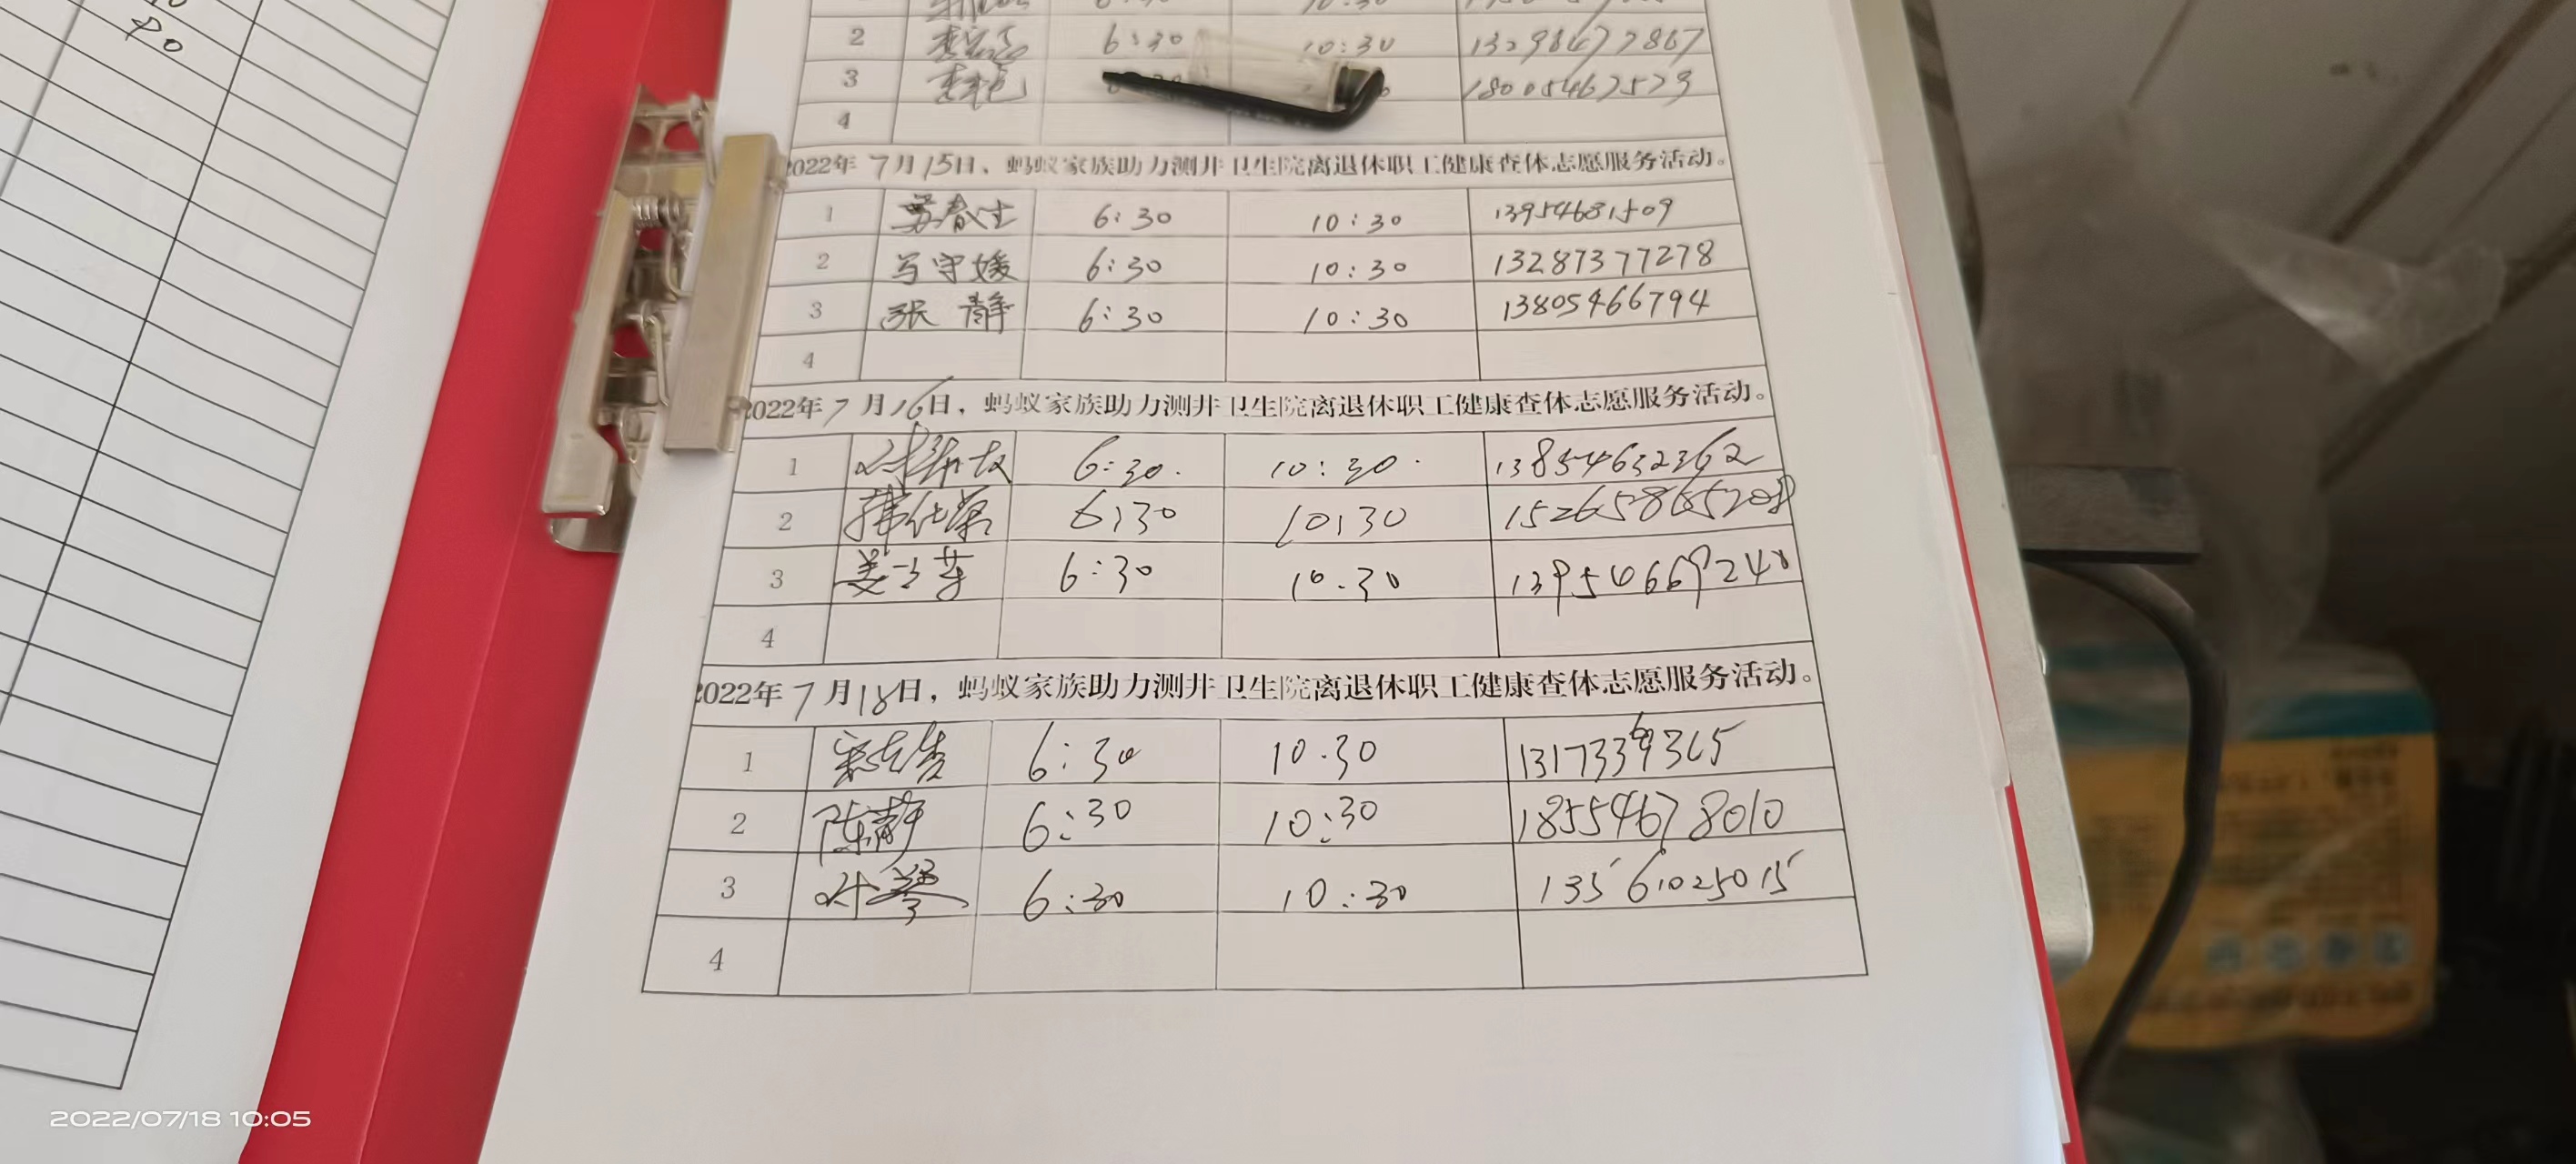 80
2 6:30 10:30 13296477867
3 18005467573
4
2022年7月15日、蚂蚁家族助力测井卫生院离退休职工健康查体志愿服务活动。
1 苏春生 6:30 10:30 13954681509
2 马守媛 6:30 10:30 13287377278
3 张静 6:30 10:30 13805466794
4
2022年7月16日，蚂蚁家族助力测井卫生院离退休职工健康查体志愿服务活动。
1 6:30. 10:30. 13854632362
2 6:30 10:30
3 姜云芳 6:30 10.30 13954669240
4
2022年7月18日，蚂蚁家族助力测井卫生院离退休职工健康查体志愿服务活动。
1 6:30 10.30
2 陈静 6:30 10:30 18554678010
3 叶琴 6:30 10:30 13561025015
4
2022/07/18 10:05